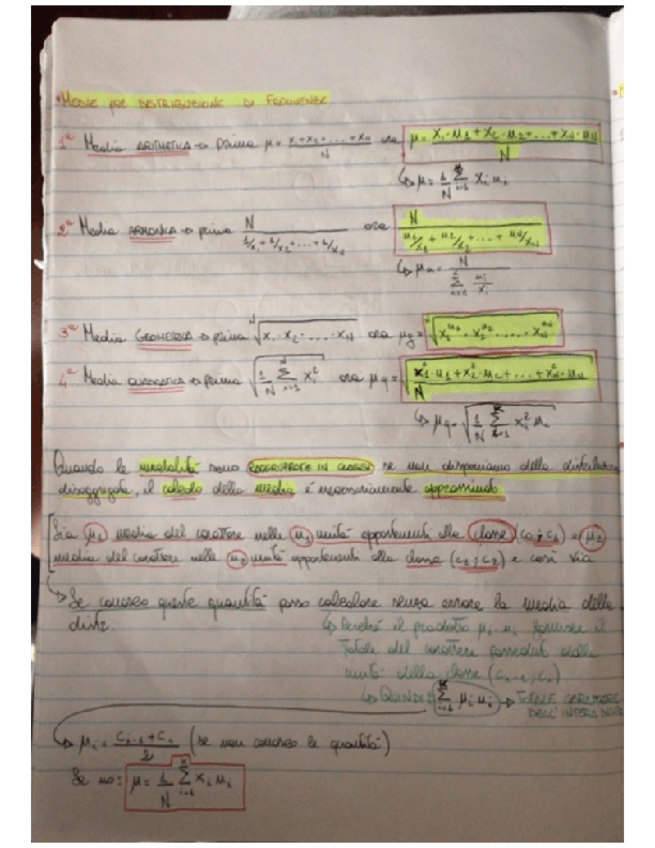 • MEDIE per DISTRIBUZIONE DI FREQUENZE
1ª Media ARITMETICA → prima μ = x₁+x₂+...+x_N / N ora μ = x₁·n₁+x₂·n₂+...+x_N·n_N / N
↳ μ = 1/N Σ_{i=1}^{K} x_i n_i
2ª Media ARMONICA → prima N / 1/x₁ + 1/x₂ + ... + 1/x_N ora N / n₁/x₁ + n₂/x₂ + ... + n_N/x_N
↳ μa = N / Σ_{i=1}^{K} n_i/x_i
3ª Media GEOMETRICA → prima ᴺ√x₁·x₂·...·x_N ora μg = ᴺ√x₁^{n₁}·x₂^{n₂}·...·x_N^{n_N}
4ª Media QUADRATICA → prima √(1/N Σ_{i=1}^{N} x_i²) ora μq = √(x₁²·n₁+x₂²·n₂+...+x_N²·n_N / N)
↳ μq = √(1/N Σ_{i=1}^{K} x_i² n_i)
Quando le modalità sono RAGGRUPPATE IN CLASSI se non disponiamo della distribuz
disaggregata, il calcolo della media è necessariamente approssimato
Sia μ₁ media del carattere nelle n₁ unità appartenenti alla classe (c₀; c₁) e μ₂
media del carattere nelle n₂ unità appartenenti alla classe (c₁; c₂) e così via
↳ Se conosco queste quantità posso calcolare senza errore la media della
distr.
↳ Perché il prodotto μ_i·n_i fornisce il
Totale del carattere posseduto dalle
unità della classe (c_{i-1}; c_i)
↳ QUINDI Σ_{i=1}^{K} μ_i n_i → TOTALE CARATTERE
DELL'INTERA DISTR
↳ μ_i = c_{i-1}+c_i / 2 (se non conosco le quantità)
Se no: μ = 1/N Σ_{i=1}^{K} x_i n_i